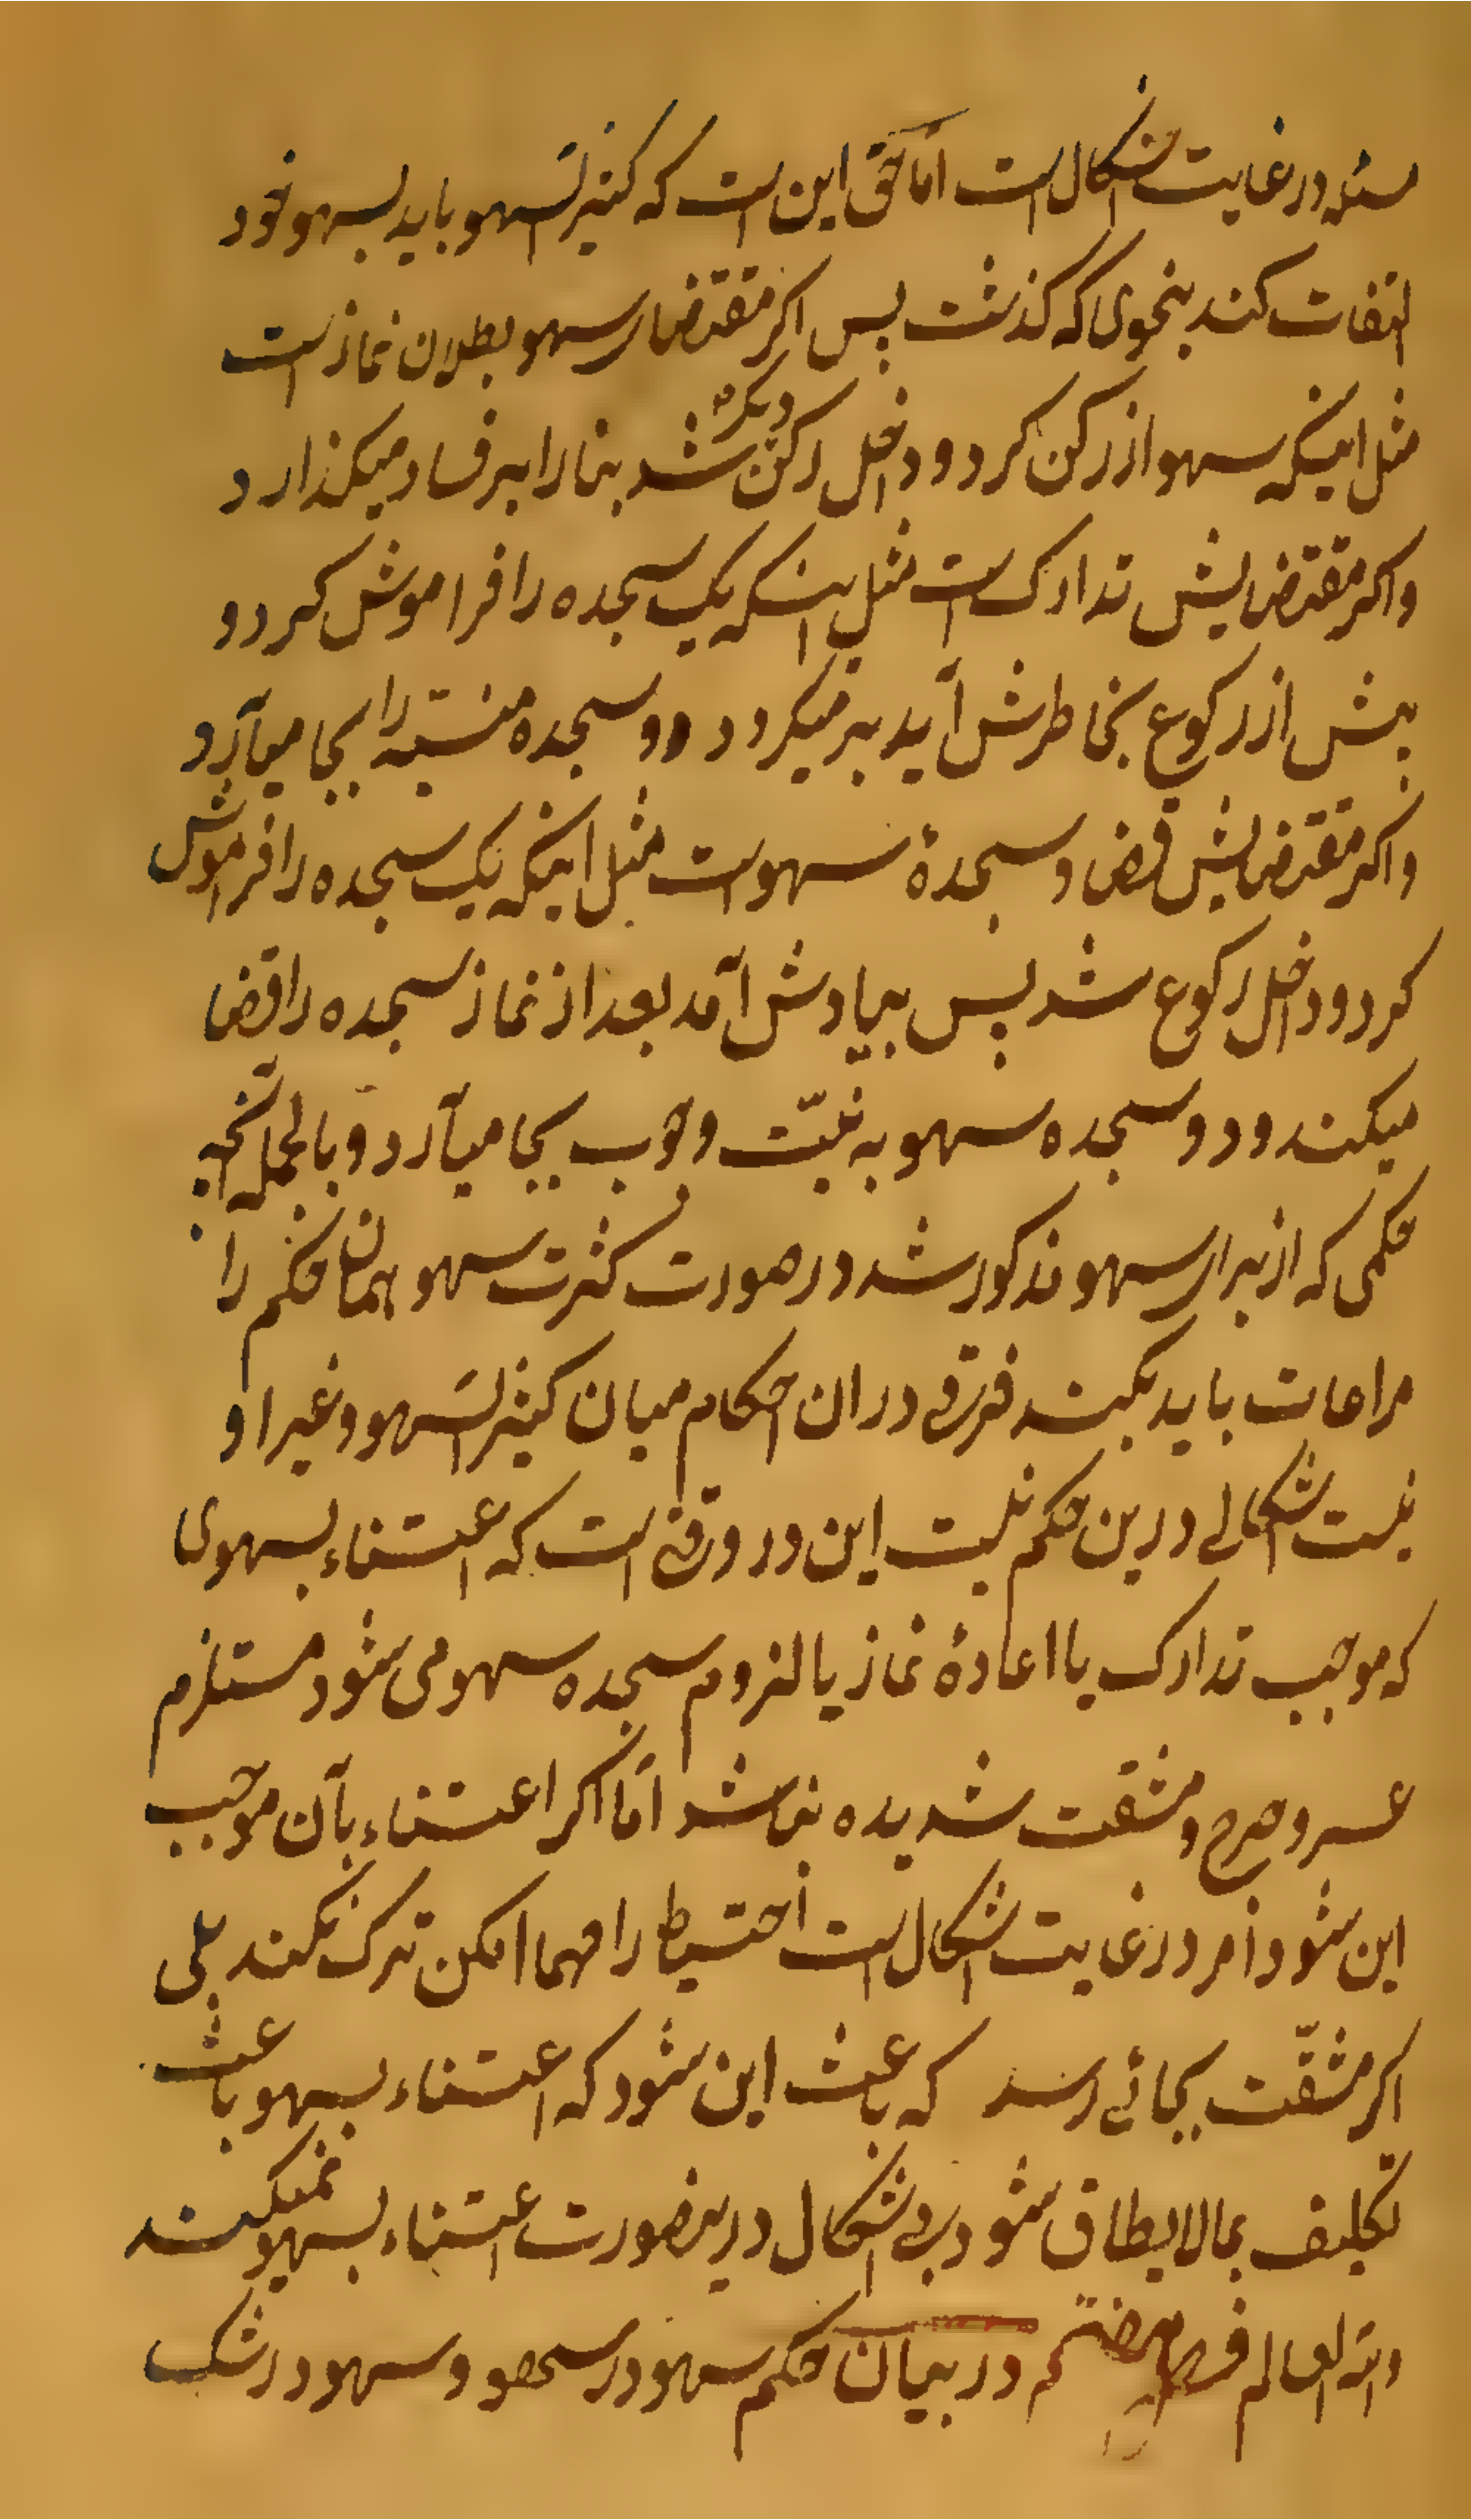 مسئله در غایت اشکال است اما حق این است که کثیر السهو باید بسهو خود
التفات کند بنحوی که کذشت پس اکر مقتضای سهو بطلان نماز است
مثل اینکه سهو از رکن کرد و داخل رکن دیکر شد بنا را بر فساد میکذارد
و اکر مقتضایش تدارک است مثل اینکه یک سجده را فراموش کرد و
پیش از رکوع بخاطرش آید بر میکردد و سجده منسیه را بجا میآرد
و اکر مقتضایش قضا و سجدۀ سهو است مثل اینکه یک سجده را فراموش
کرد و داخل رکوع شد پس بیادش آمد بعد از نماز سجده را قضا
میکند و دو سجده سهو به نیّت وجوب بجا میآرد و بالجمله آنچه
حکمی که از برای سهو مذکور شد در صورت کثرت سهو همان حکم را
مراعات باید بکند فرقی در ان احکام میان کثیر السهو و غیر او
نیست اشکالی درین حکم نیست این در وقتی است که اعتناء بسهوی
که موجب تدارک یا اعادۀ نماز یا لزوم سجده سهو می شود مستلزم
عسر و حرج و مشقت شدیده نباشد امّا اکر اعتناء بآن موجب
این شود امر در غایت اشکال است احتیاط را مهما امکن ترک نکند بلی
اکر مشقّت بجائے رسد که باعث این شود که اعتناء بسهو باعث
تکلیف بمالایطاق شود بی اشکال درینصورت اعتناء بسهو نمیکند
والله العالم فصل هفتم در بیان حکم سهو در سهو و سهو در شک